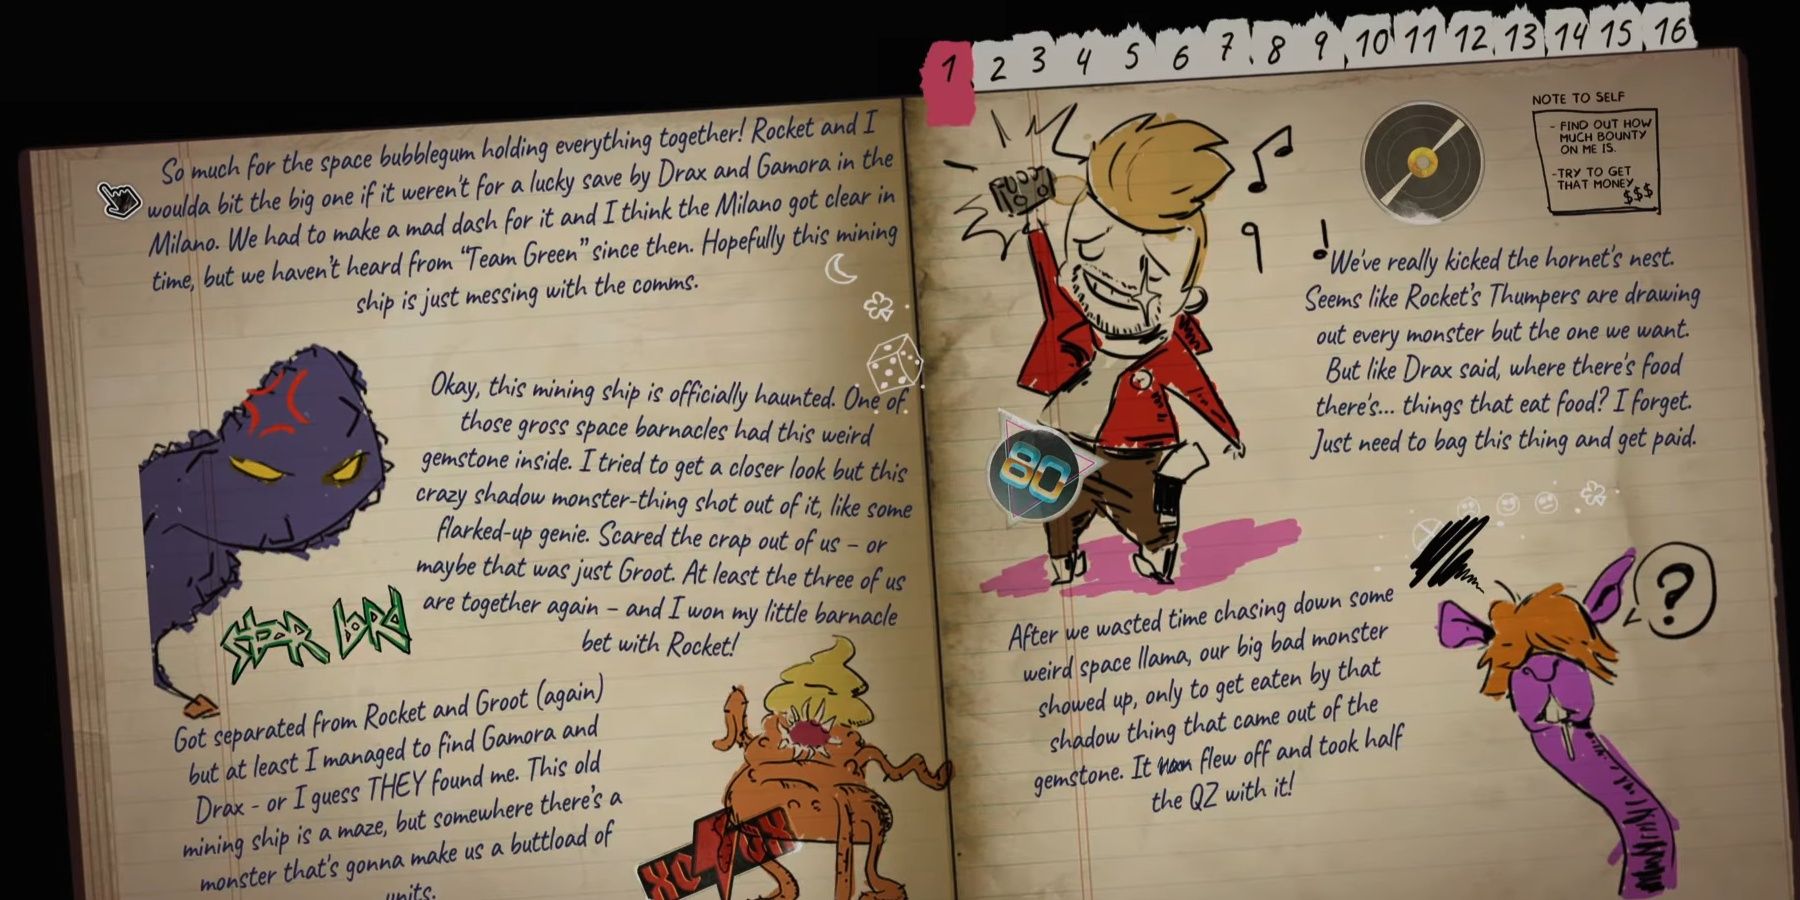 1 2 3 4 5 6 7 8 9 10 11 12 13 14 15 16
So much for the space bubblegum holding everything together! Rocket and I
woulda bit the big one if it weren't for a lucky save by Drax and Gamora in the
Milano. We had to make a mad dash for it and I think the Milano got clear in
time, but we haven't heard from "Team Green" since then. Hopefully this mining
ship is just messing with the comms.
Okay, this mining ship is officially haunted. One of
those gross space barnacles had this weird
gemstone inside. I tried to get a closer look but this
crazy shadow monster-thing shot out of it, like some
flarked-up genie. Scared the crap out of us – or
maybe that was just Groot. At least the three of us
are together again – and I won my little barnacle
bet with Rocket!
STAR LORD
Got separated from Rocket and Groot (again)
but at least I managed to find Gamora and
Drax - or I guess THEY found me. This old
mining ship is a maze, but somewhere there's a
monster that's gonna make us a buttload of
units.
NOTE TO SELF
- FIND OUT HOW
MUCH BOUNTY
ON ME IS.
-TRY TO GET
THAT MONEY
$$$
80
We've really kicked the hornet's nest.
Seems like Rocket's Thumpers are drawing
out every monster but the one we want.
But like Drax said, where there's food
there's... things that eat food? I forget.
Just need to bag this thing and get paid.
?
After we wasted time chasing down some
weird space llama, our big bad monster
showed up, only to get eaten by that
shadow thing that came out of the
gemstone. It flew off and took half
the QZ with it!